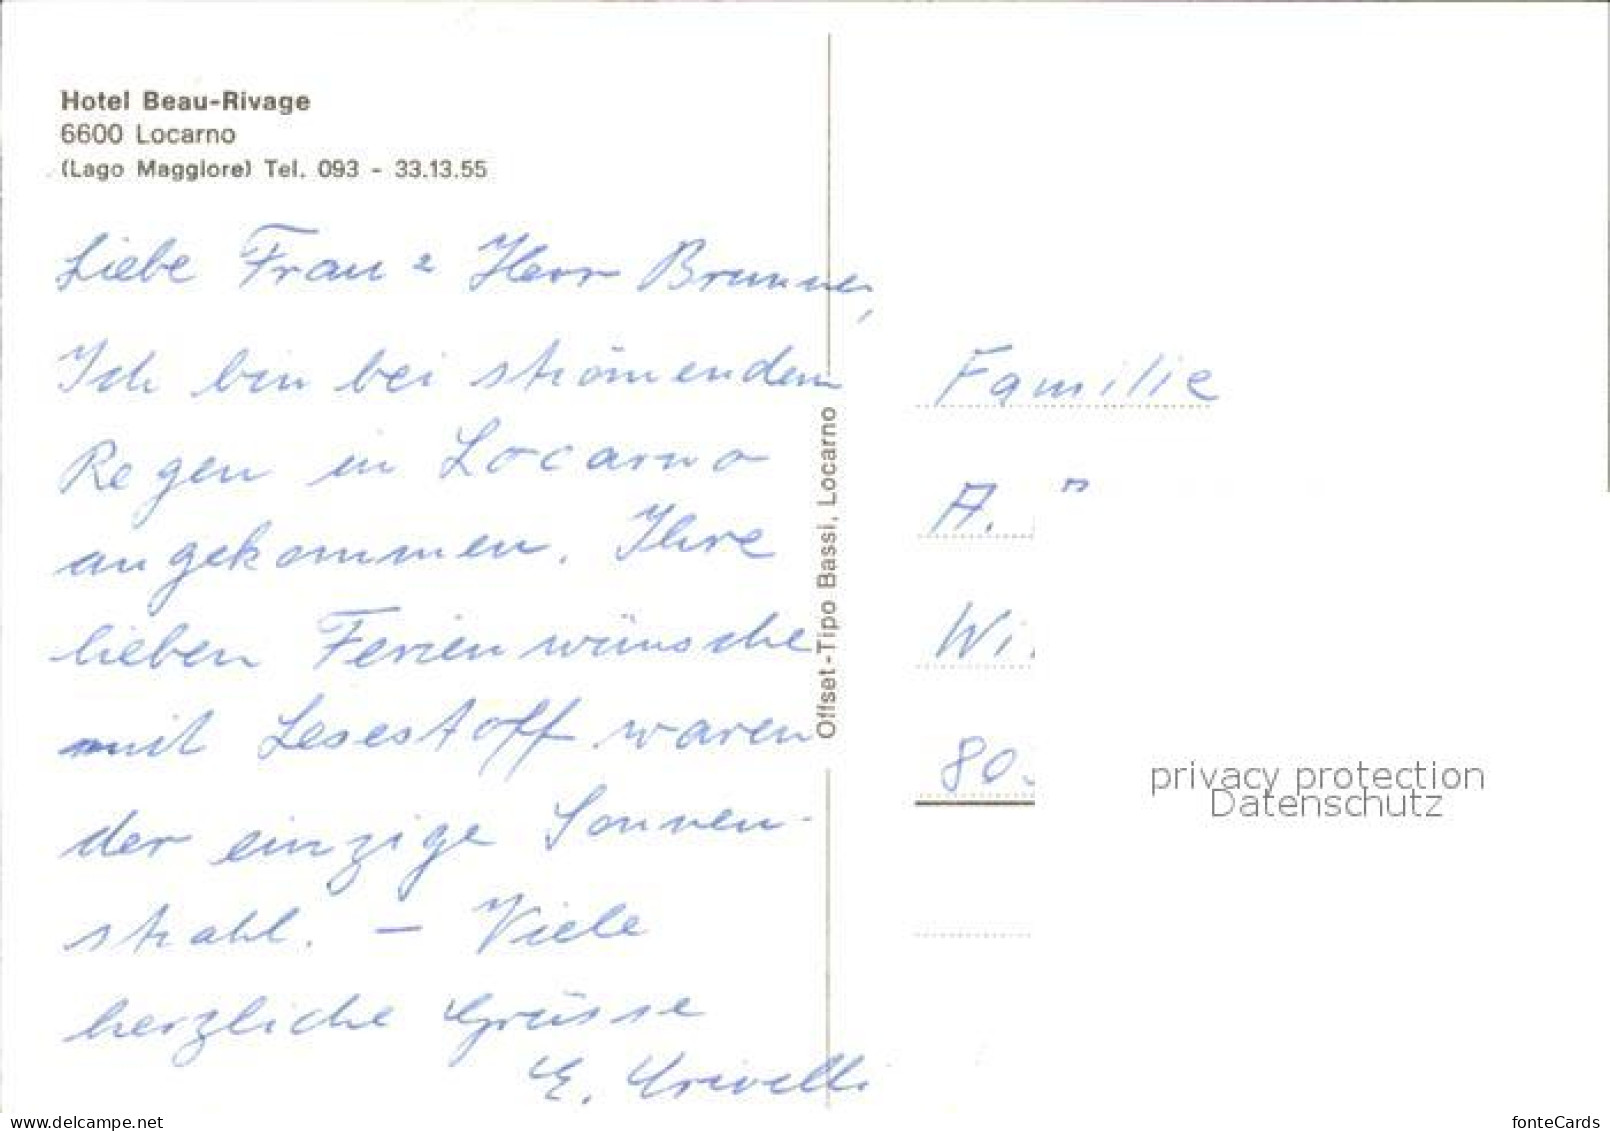 Hotel Beau-Rivage
6600 Locarno
(Lago Maggiore) Tel. 093 - 33.13.55
Liebe Frau & Herr Brunner,
Ich bin bei strömendem
Regen in Locarno
angekommen. Ihre
lieben Ferienwünsche
mit Lesestoff waren
der einzige Sonnen-
strahl. – Viele
herzliche Grüsse
E. Crivelli
Offset-Tipo Bassi, Locarno
Familie
A.
Wi
80
privacy protection
Datenschutz
delcampe.net
fonteCards